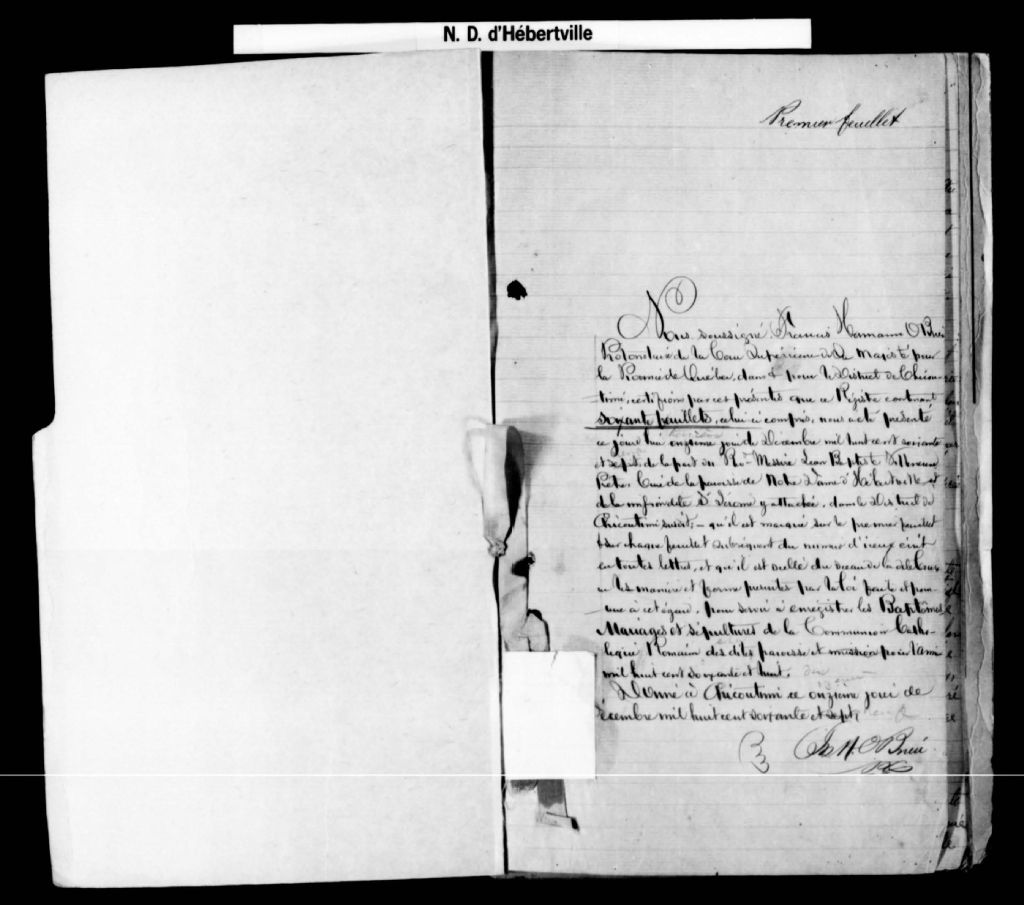 N. D. d'Hébertville
Premier feuillet
Nous soussigné, Francis Hermann O'Brien
Protonotaire de la Cour Supérieure de Sa Majesté pour
la Province de Québec, dans & pour le District de Chicou-
timi, certifions par ces présentes que ce Régistre contenant
soixante feuillets, celui ci compris, nous a été présenté
ce jourd'hui onzieme jour de Décembre mil huit cent soixante
et sept, de la part du Rév. Messire Jean Baptiste
Ptre. Curé de la paroisse de Notre Dame d'Hébertville et
de la mission de St Jérome y attachée, dans le District de
Chicoutimi susdit, - qu'il est marqué sur le premier feuillet
& sur chaque feuillet subséquent du numero d'iceux écrit
en toutes lettres, et qu'il est scellé du sceau de la dite Cour
en la manière et forme prescrites par la loi faite et pour-
vue à cet égard, pour servir à enregistrer les Baptêmes
Mariages et sépultures de la Communion Catho-
lique Romaine des dites paroisse et mission pour l'année
mil huit cent soixante et huit.
Donné à Chicoutimi ce onzieme jour de
Décembre mil huit cent soixante et sept.
Fs H. O'Brien